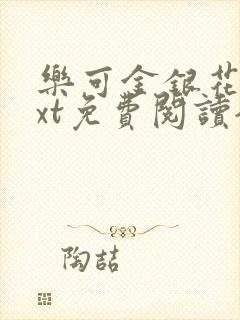 樂可金銀花
xt免費閱讀
陶喆